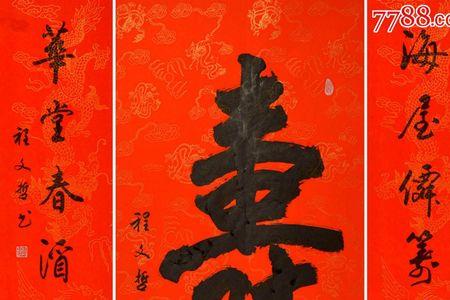 7788.co
海屋僊籌
壽
程文哲
華堂春滿
程文哲书